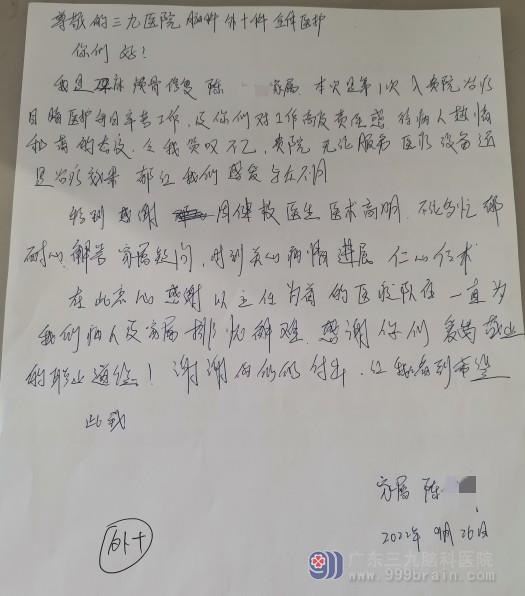 尊敬的三九医院脑科外十科全体医护
你们好！
我是 颅骨修复 陈 家属 本次是第1次入贵院治疗
目睹医护每日辛苦工作，及你们对工作高度责任感 待病人热情
和蔼的态度，令我赞叹不已，贵院无论服务 医疗设备还
是治疗效果 都让我们感受与众不同
特别感谢 周伟毅医生 医术高明，不论多忙都
耐心解答家属疑问，时刻关心病情进展 仁心仁术
在此衷心感谢以主任为首的医疗队伍 一直为
我们病人及家属排忧解难，感谢你们 爱岗敬业
的职业道德！谢谢你们的付出，让我看到希望
此致
家属 陈
2022年9月26日
外十
广东三九脑科医院
www.999brain.com